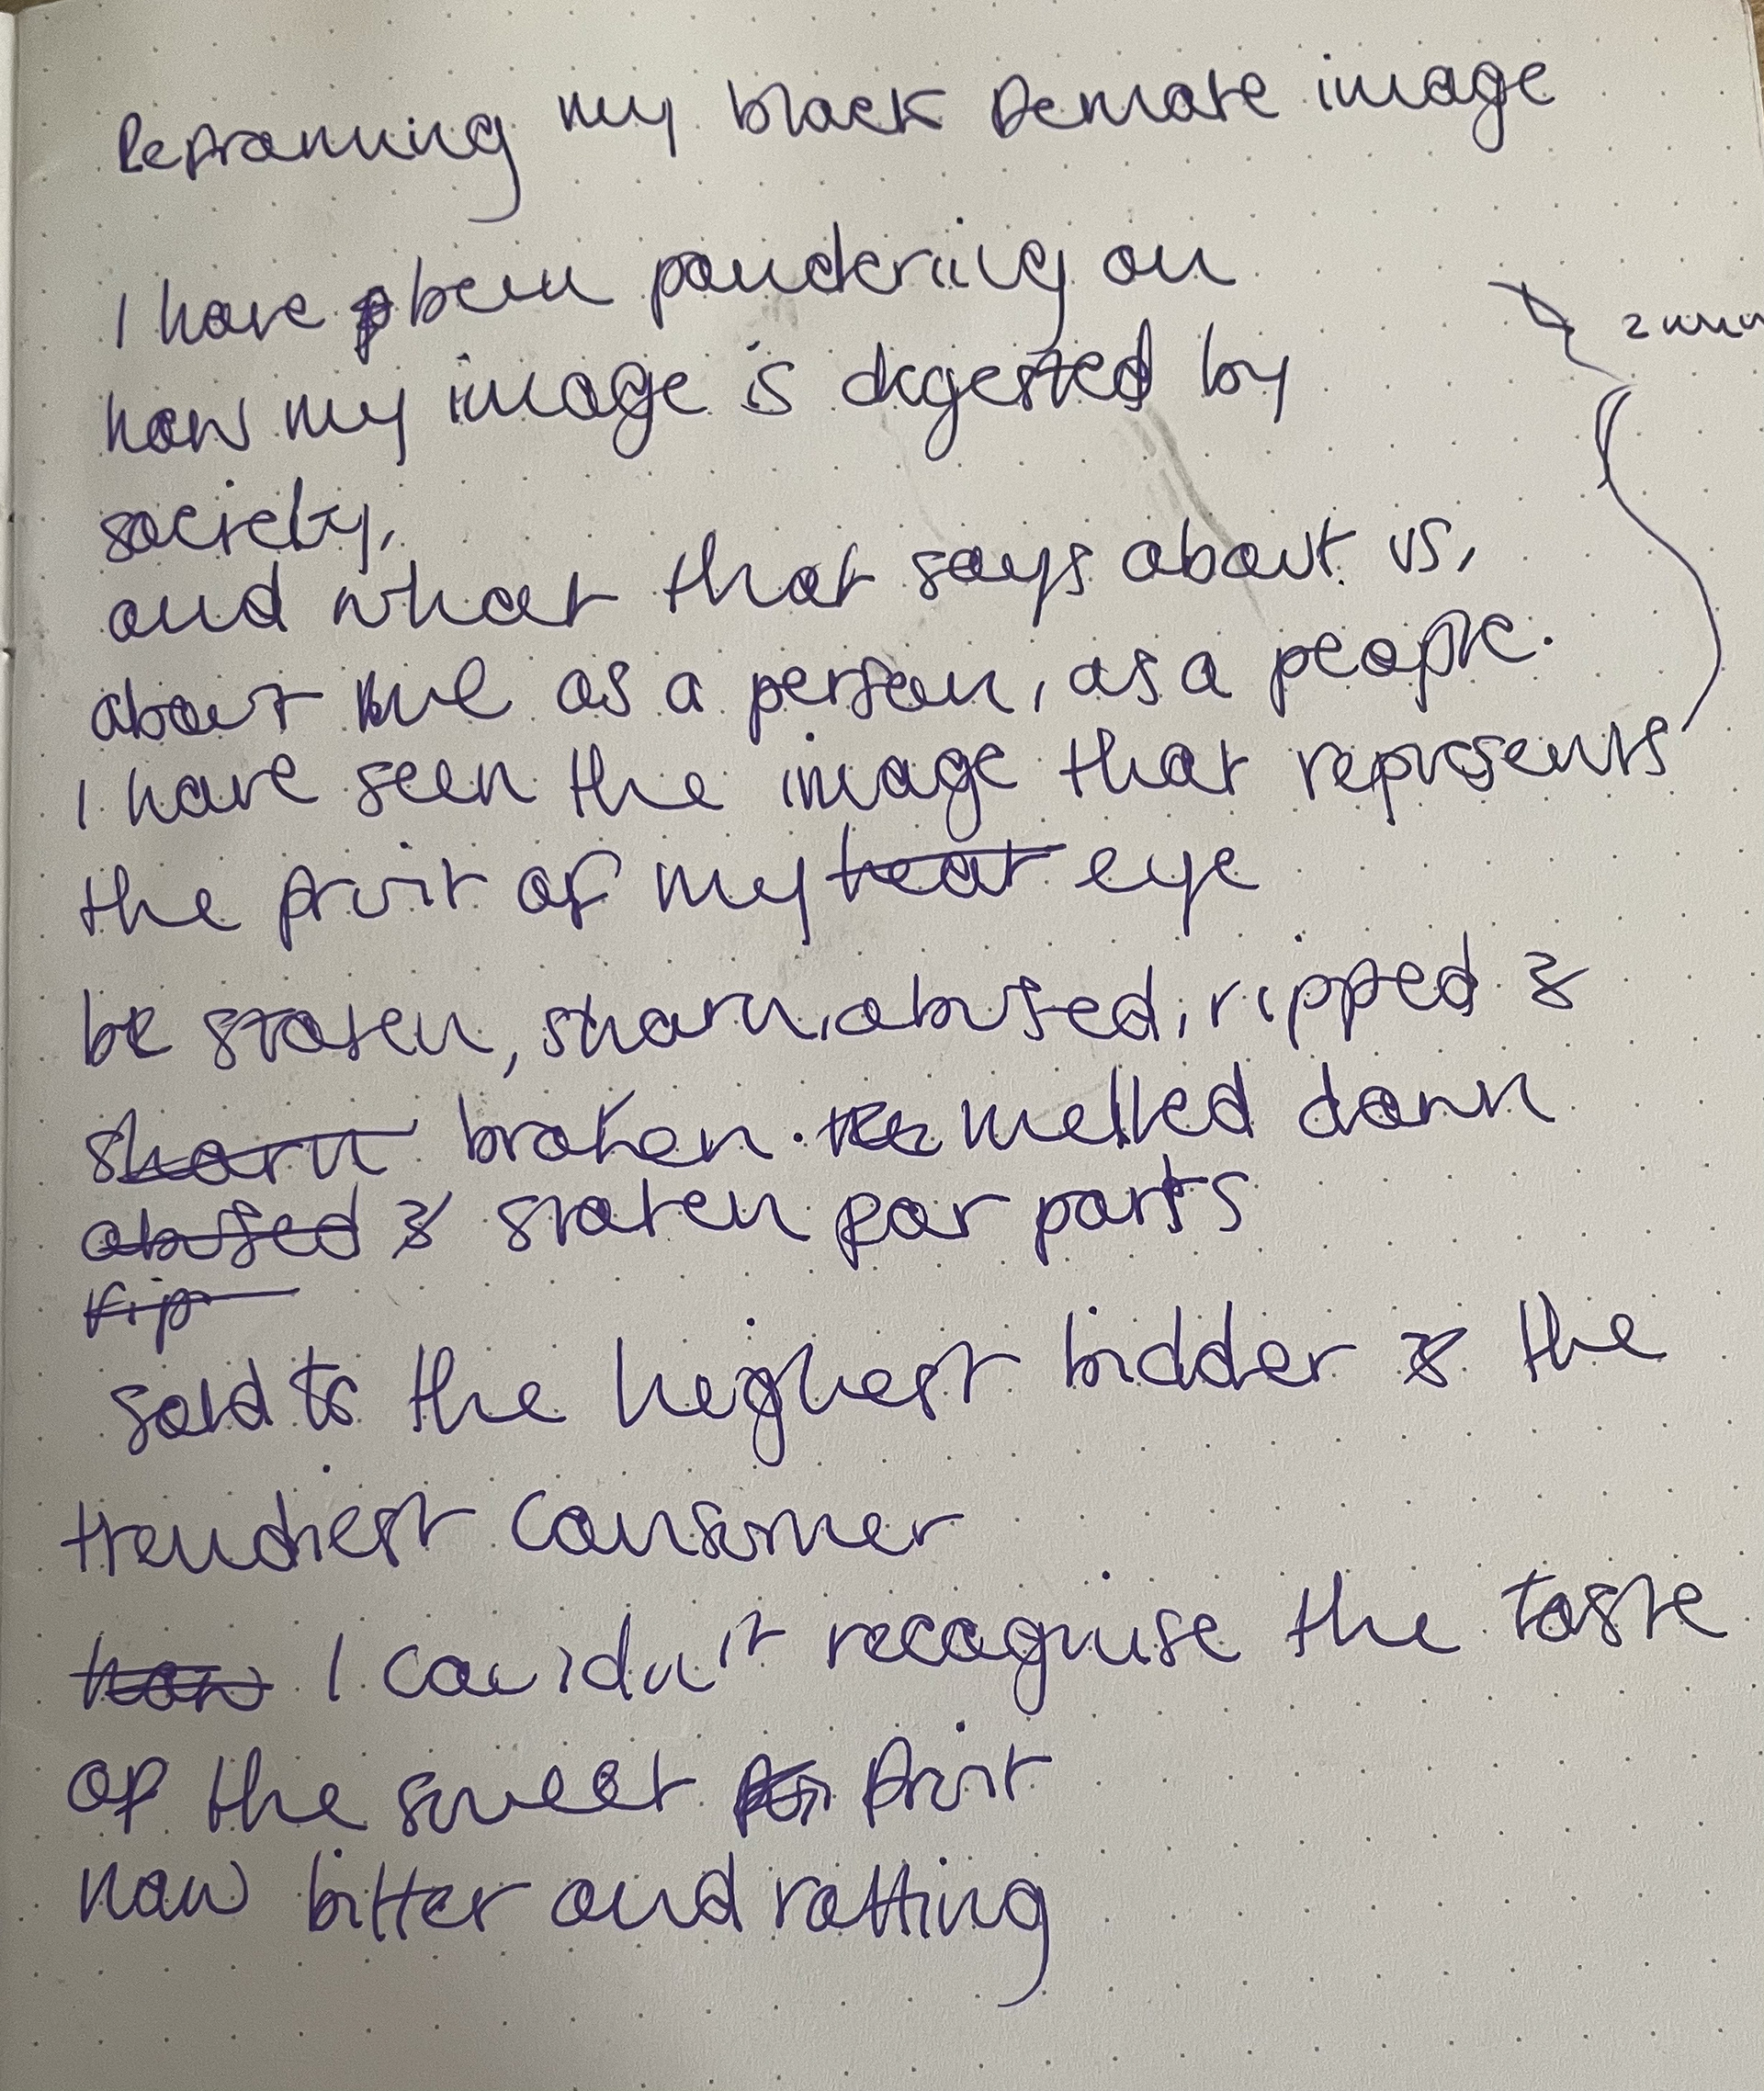 Reframing my black female image
I have been pondering on
how my image is digested by
society,
and what that says about us,
about me as a person, as a people.
I have seen the image that represents
the fruit of my heat eye
be stolen, shorn, abused, ripped &
shorn broken. melted down
abused & stolen for parts
rip
sold to the highest bidder & the
trendiest consumer
how I couldn't recognise the taste
of the sweet fruit
now bitter and rotting